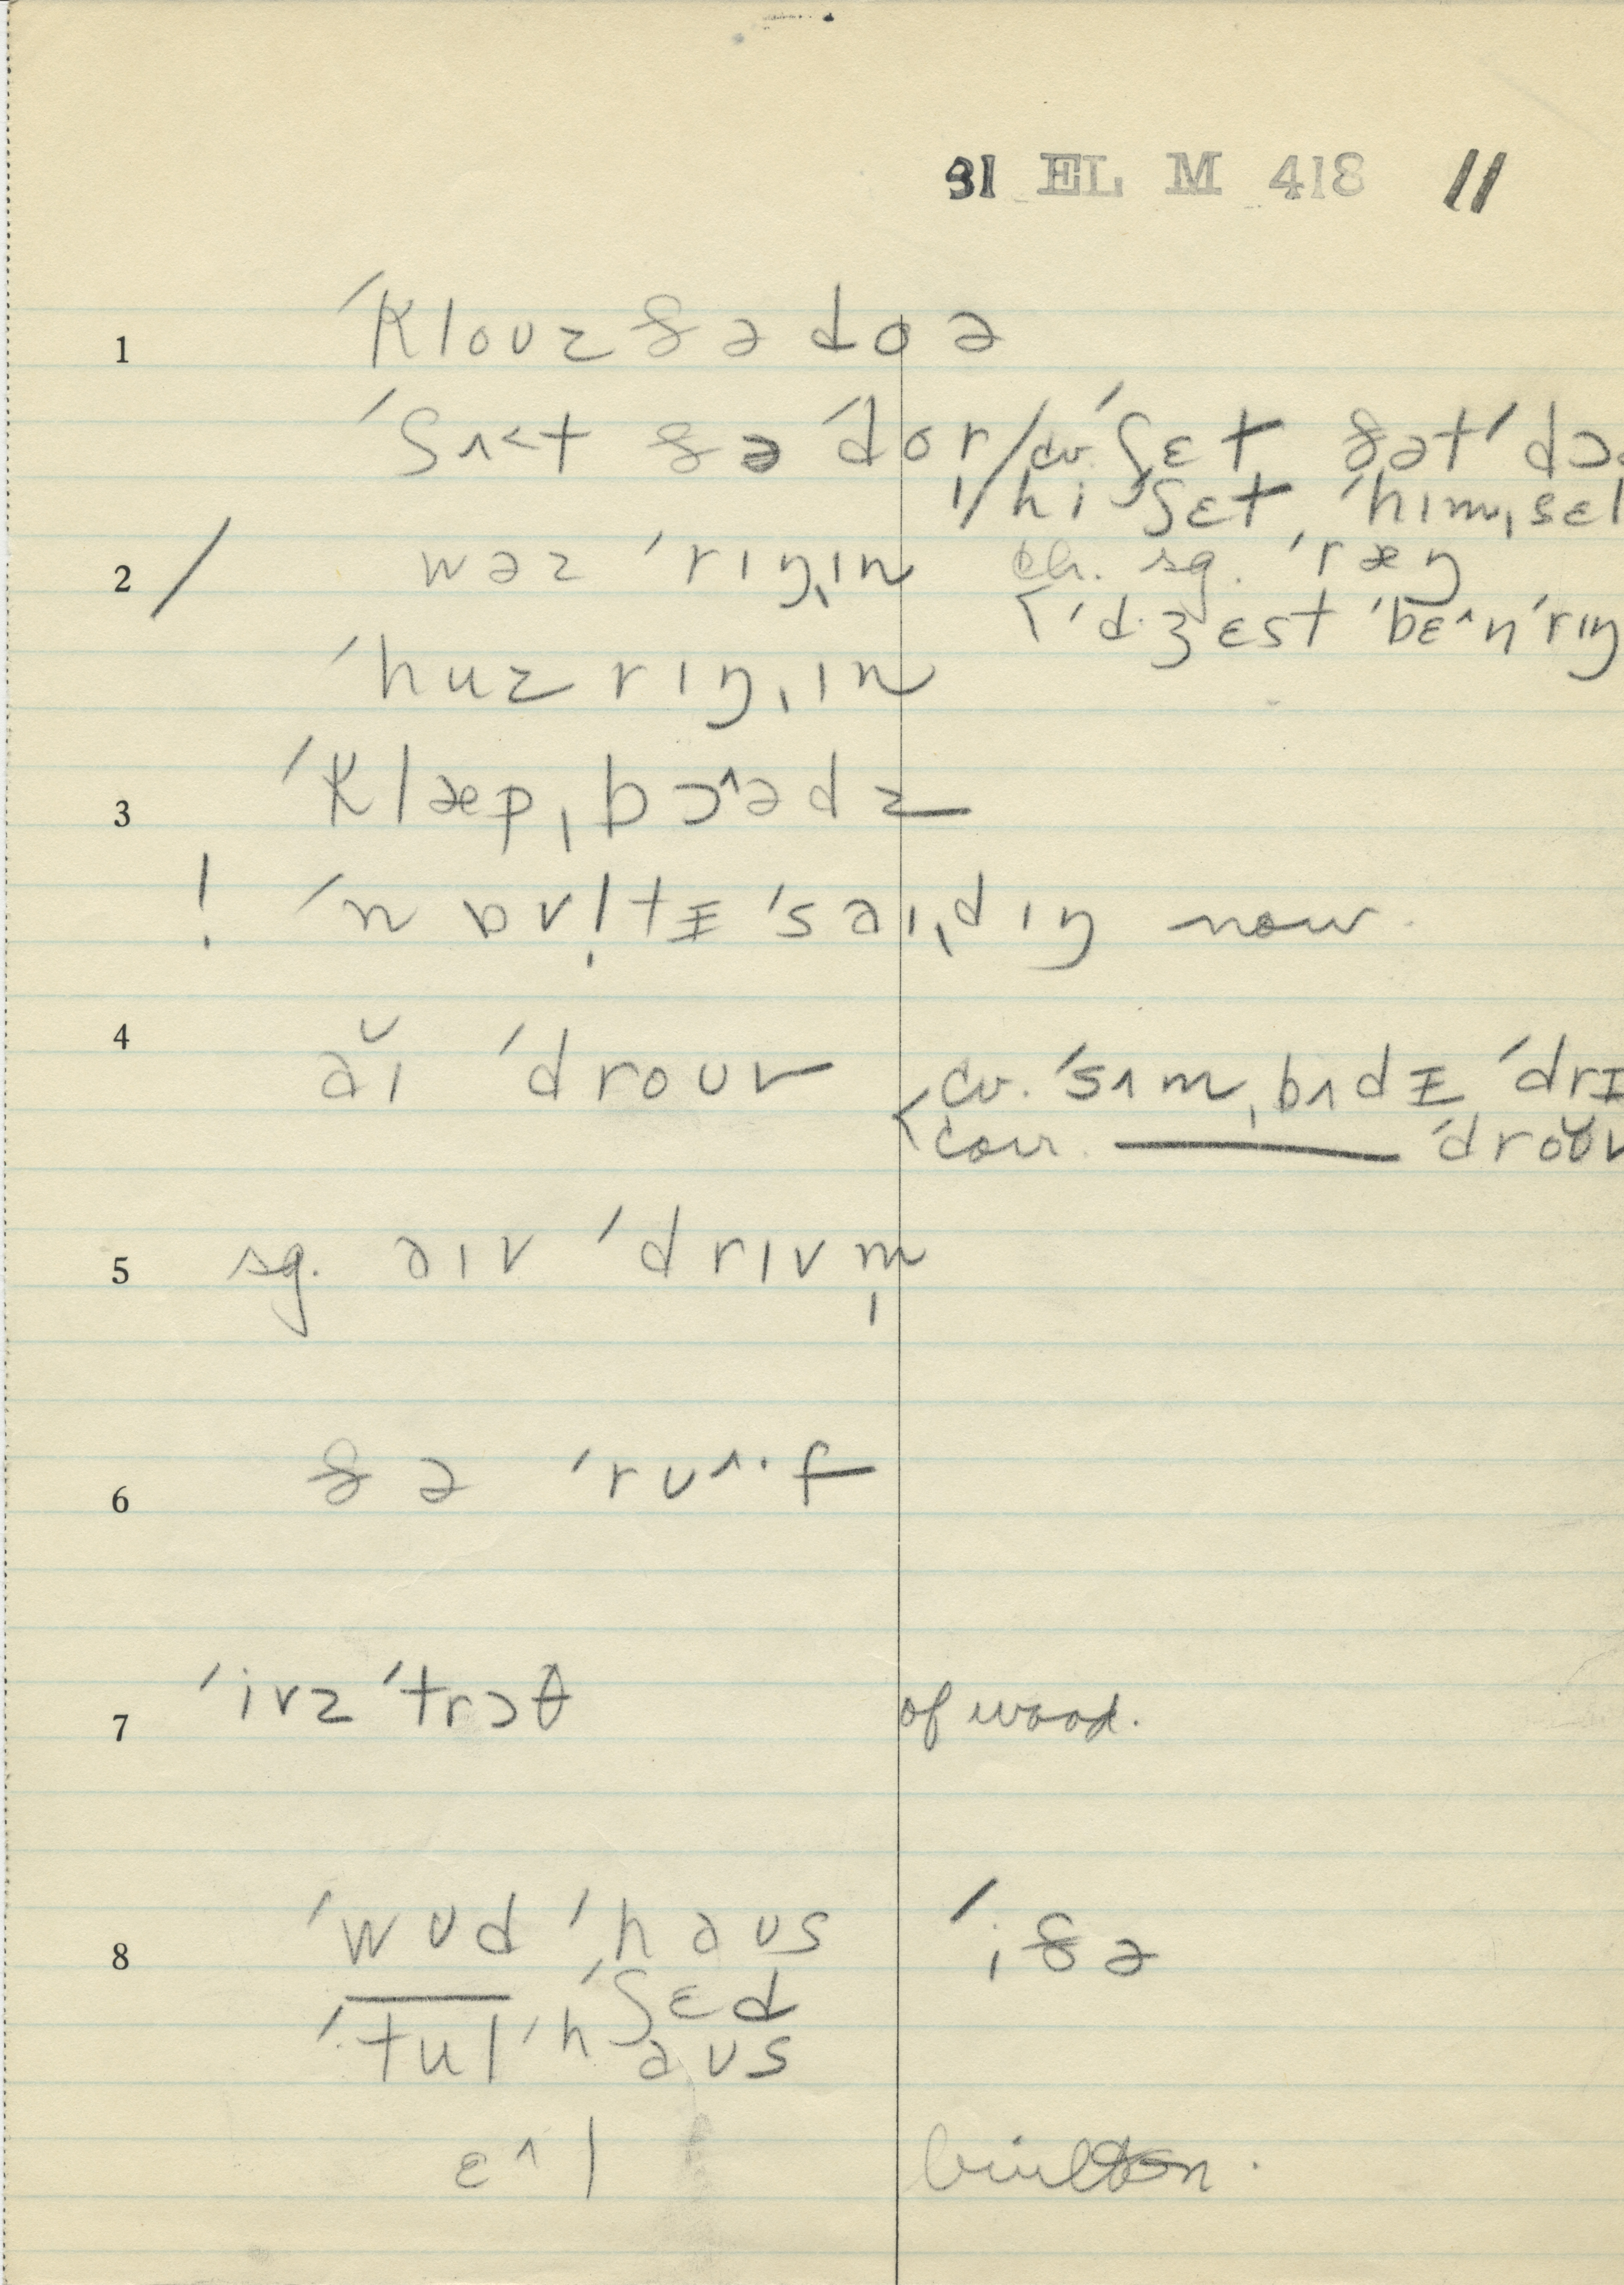 31 EL M 418 11
1 ˈklouz ðə doə
ˈʃʌ˂t ðə ˈdor / cv. ˈʃɛt ðət ˈdɔ
/ hi ˈʃɛt ˈhɪmˌsɛl
2 / wəz ˈrɪŋˌɪn sg. ˈræŋ
< ˈdʒɛst ˈbɛ^n ˈrɪŋ
ˈhuz rɪŋˌɪn
3 ˈklæpˌbɔ^ədz
! ˈnɒv!tɪ ˈsaɪˌdɪŋ now.
4 ăɪ ˈdrouv < cv. ˈsʌmˌbʌdɪ ˈdrɪ
corr. ——— ˈdrŏŭv
5 sg. aɪv ˈdrɪvm̩
6 ðə ˈrʊ^·f
7 ˈivz ˈtrɔθ of wood.
8 ˈwʊd ˈhaʊs ˈiðə
—— ˈʃɛd
ˈtul ˈhaʊs
ɛ^l